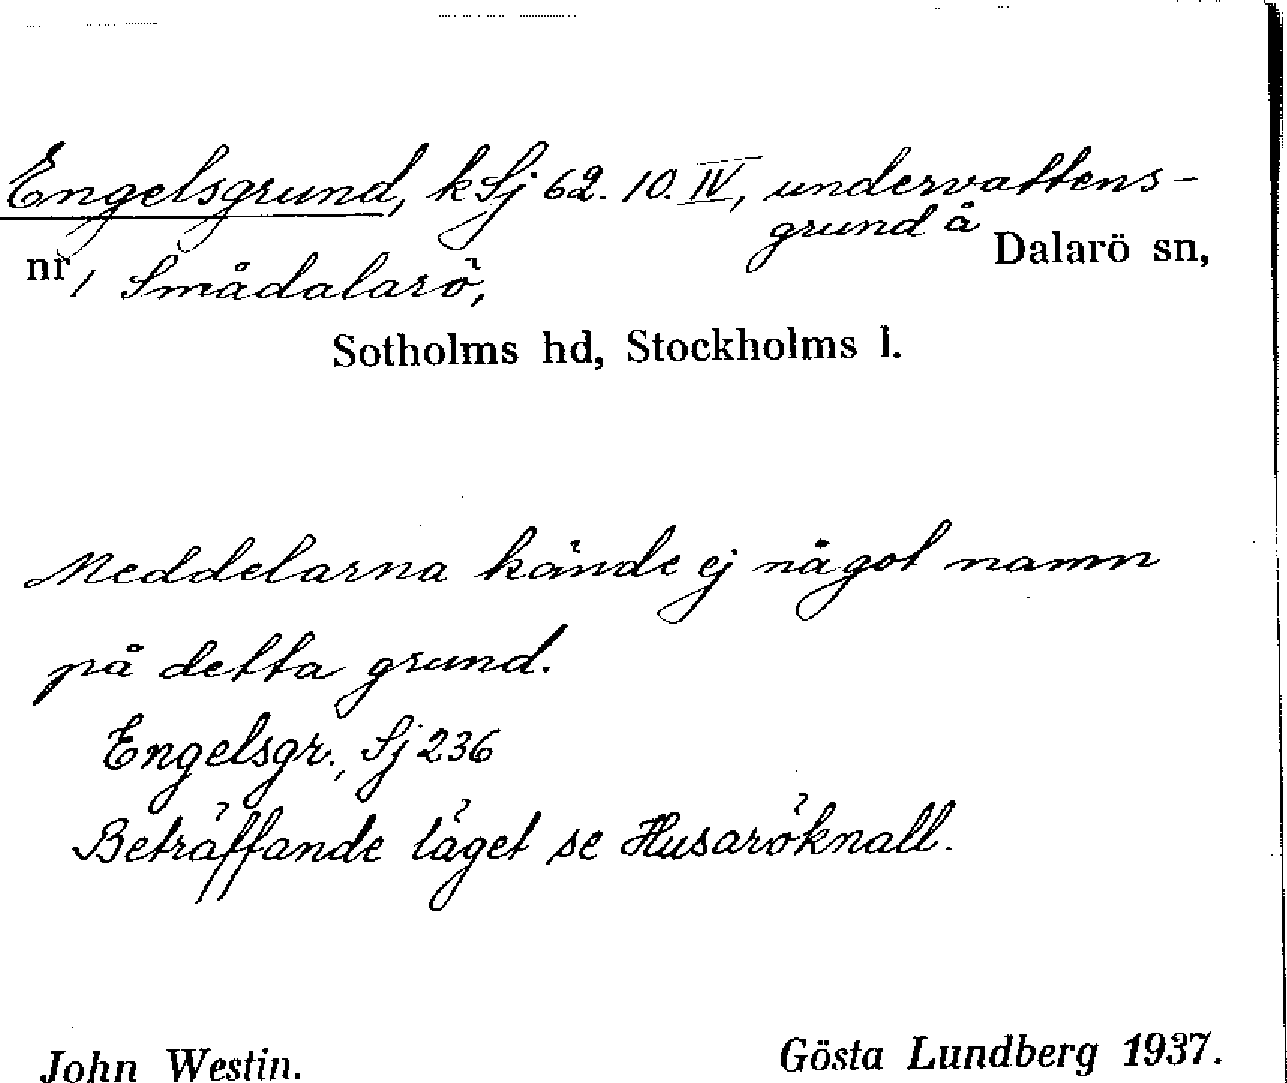 Engelsgrund, k Sj 62. 10. IV, undervattens-
grund å Dalarö sn,
nr 1 Smådalarö,
Sotholms hd, Stockholms l.
Meddelarna kände ej något namn
på detta grund.
Engelsgr., Sj 236
Beträffande läget se Husaröknall.
John Westin. Gösta Lundberg 1937.